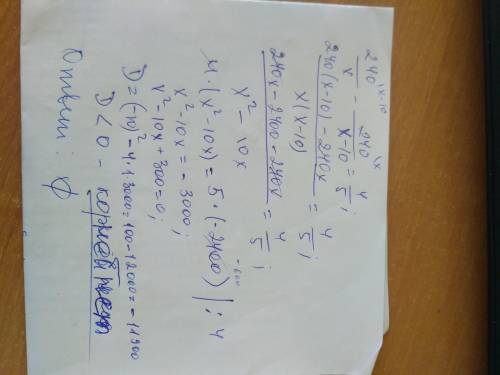 240/x - 240/(x-10) = 4/5 ;
(240(x-10) - 240x)/(x(x-10)) = 4/5 ;
(240x - 2400 - 240x)/(x² - 10x) = 4/5 ;
4·(x² - 10x) = 5·(-2400) | :4
x² - 10x = -3000;
x² - 10x + 3000 = 0;
D = (-10)² - 4·1·3000 = 100 - 12000 = -11900
D < 0 - корней нет
Ответ: ∅